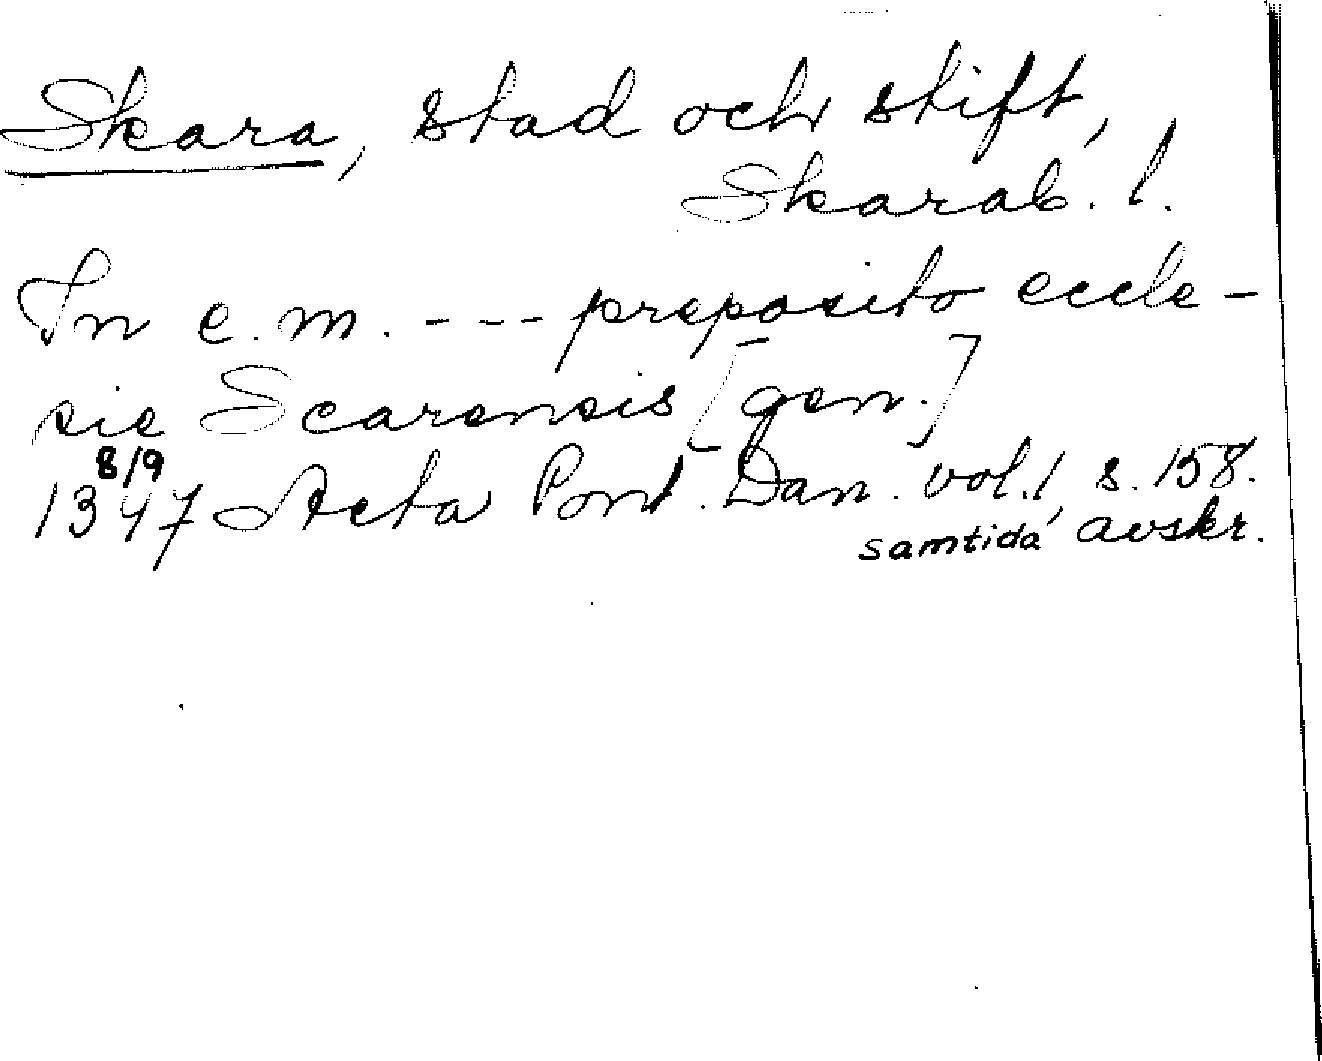 Skara, stad och stift,
Skarab. l.
In e. m. --- preposito eccle-
sie Scarensis [gen.]
8/9
1347 Acta Pont. Dan. vol. 1, s. 158.
samtida avskr.